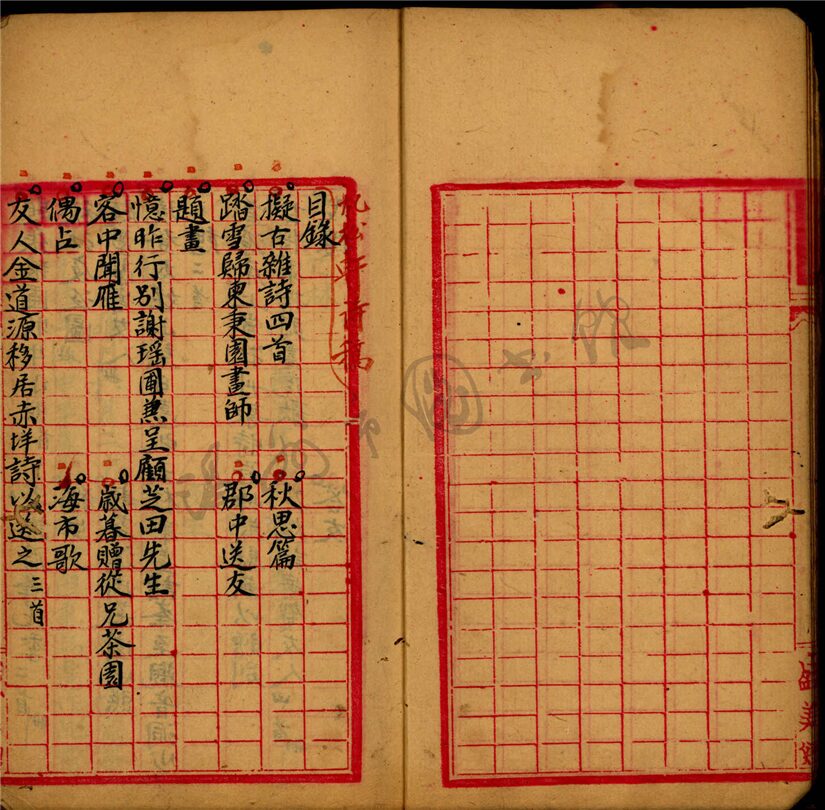 目錄
擬古雜詩四首　秋思篇
踏雪歸東秉園畫師　郡中送友
題畫
憶昨行別謝瑶圃兼呈顧芝田先生
客中聞雁　歲暮贈從兄茶園
偶占　海市歌
友人金道源移居赤垟詩以送之三首